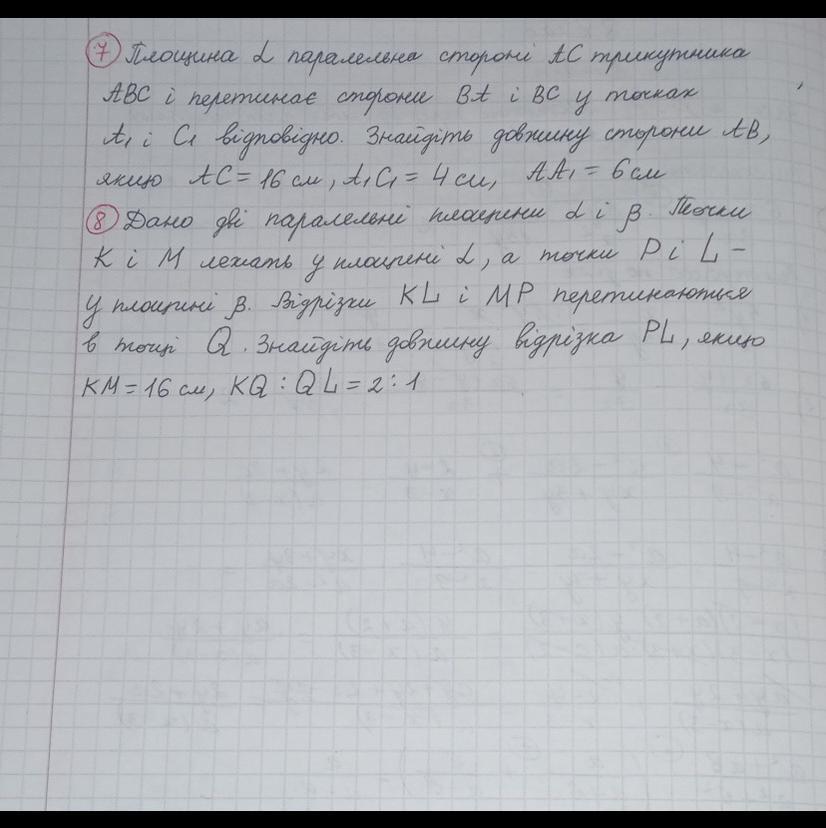 7 Площина α паралельна стороні AC трикутника
ABC і перетинає сторони BA і BC у точках
A₁ і C₁ відповідно. Знайдіть довжину сторони AB,
якщо AC = 16 см, A₁C₁ = 4 см, AA₁ = 6 см
8 Дано дві паралельні площини α і β. Точки
K і M лежать у площині α, а точки P і L –
у площині β. Відрізки KL і MP перетинаються
в точці Q. Знайдіть довжину відрізка PL, якщо
KM = 16 см, KQ : QL = 2 : 1